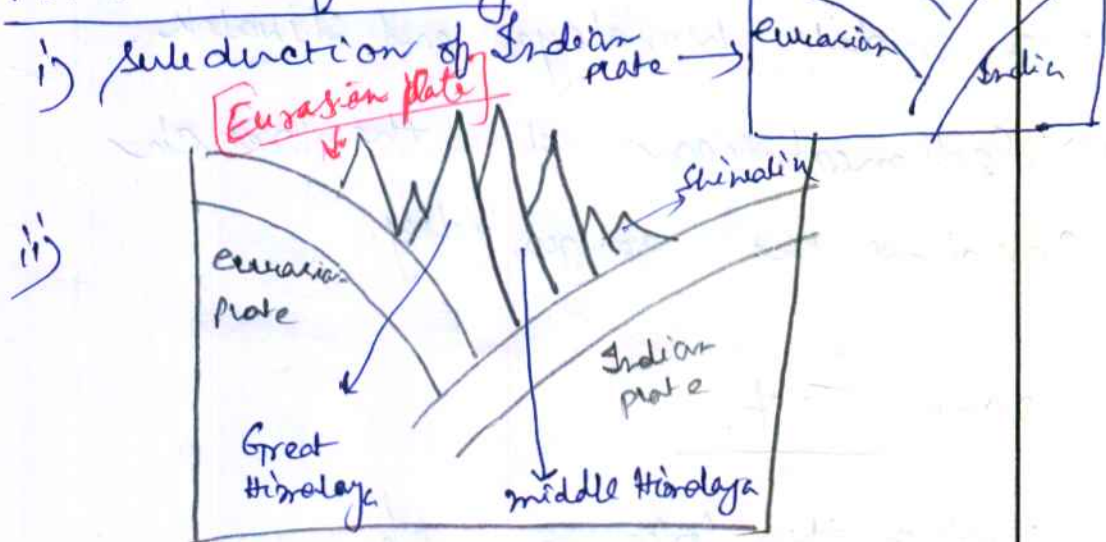 i) Subduction of Indian plate →
eurasian
India
[Eurasian plate]
ii)
Shiwalik
eurasian plate
Indian plate
Great Himalaya
middle Himalaya